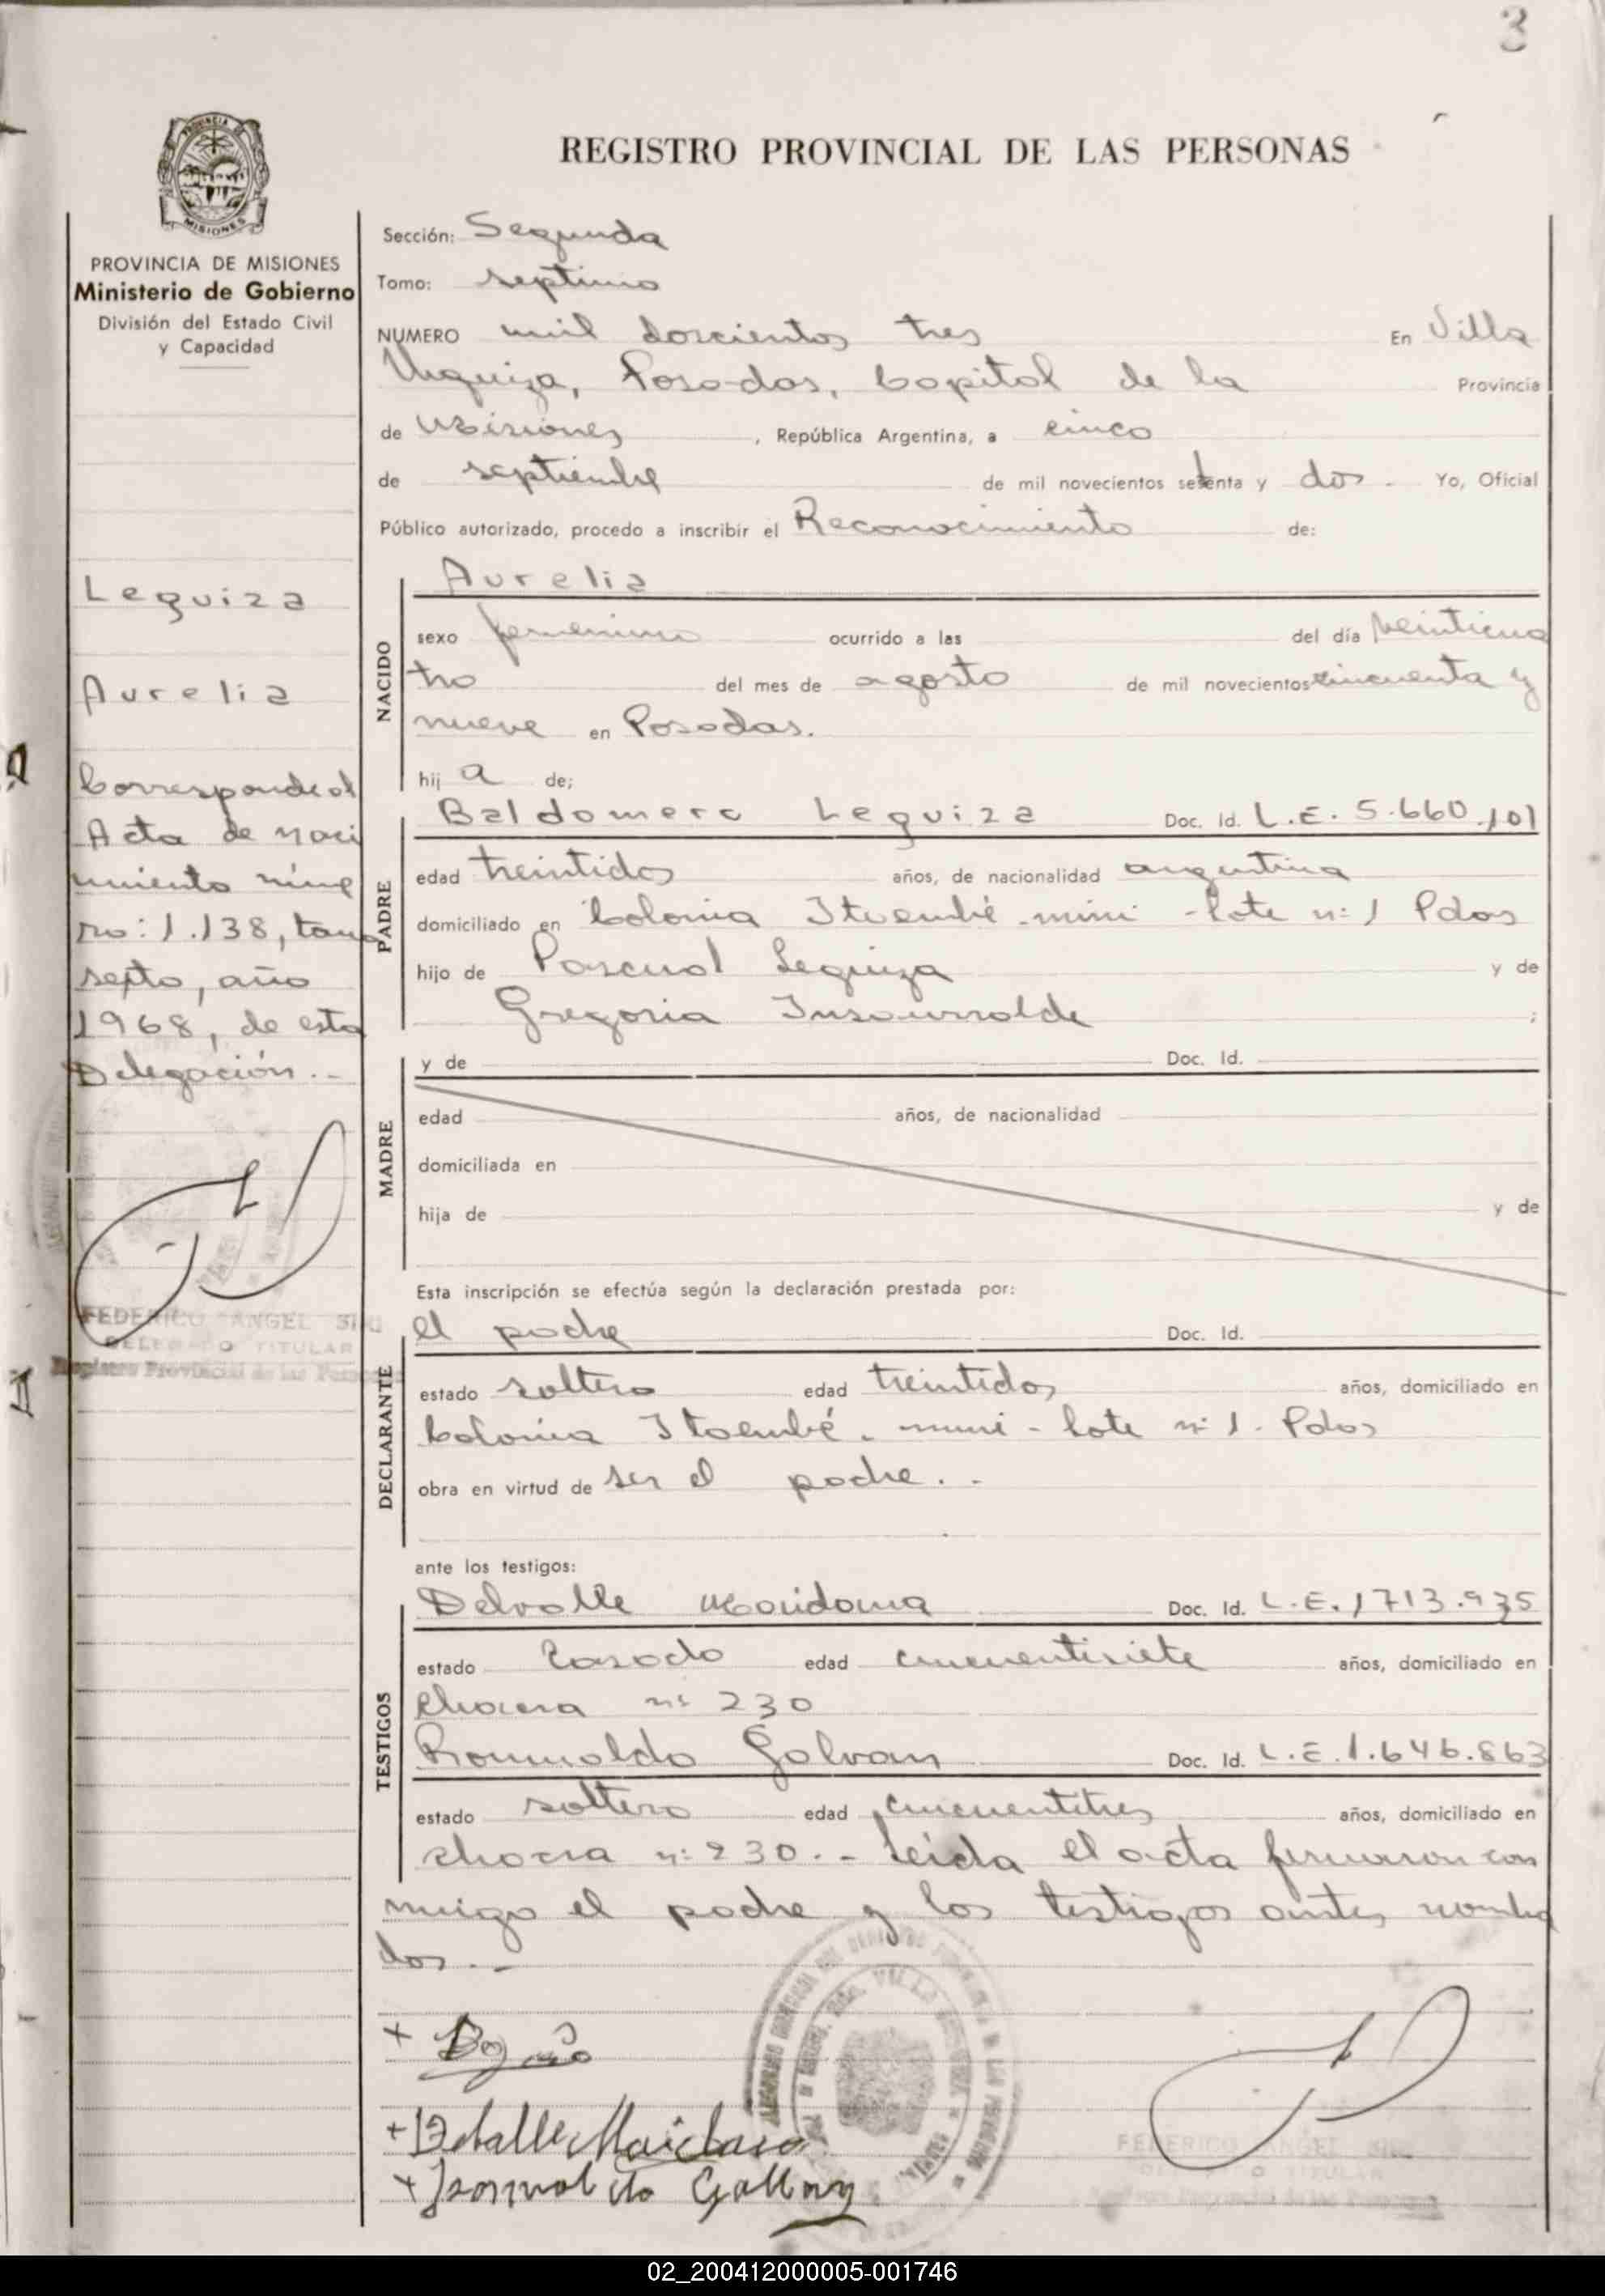 3
PROVINCIA DE
MISIONES
REGISTRO PROVINCIAL DE LAS PERSONAS
PROVINCIA DE MISIONES
Ministerio de Gobierno
División del Estado Civil
y Capacidad
Leguiza
Aurelia
Corresponde al
Acta de naci
miento núme
ro: 1.138, tomo
septo, año
1968, de esta
Delegación.-
FEDERICO ANGEL
DELEGADO TITULAR
Registro Provincial de las Personas
Sección: Segunda
Tomo: septimo
NUMERO mil doscientos tres En Villa
Urquiza, Posadas, Capital de la Provincia
de Misiones, República Argentina, a cinco
de septiembre de mil novecientos setenta y dos. Yo, Oficial
Público autorizado, procedo a inscribir el Reconocimiento de:
NACIDO
Aurelia
sexo femenino ocurrido a las del día veinticua
tro del mes de agosto de mil novecientos cincuenta y
nueve en Posadas.
hij a de;
PADRE
Baldomero Leguiza Doc. Id. L.E. 5.660.101
edad treintidos años, de nacionalidad argentina
domiciliado en Colonia Itaembé-mini-lote nº 1 Pdas
hijo de Pascual Leguiza y de
Gregoria Insaurralde ;
MADRE
y de Doc. Id.
edad años, de nacionalidad
domiciliada en
hija de y de
Esta inscripción se efectúa según la declaración prestada por:
DECLARANTE
el padre Doc. Id.
estado soltero edad treintidos años, domiciliado en
Colonia Itaembé-mini-lote nº 1. Pdas
obra en virtud de ser el padre.-
ante los testigos:
TESTIGOS
Delvalle Maidana Doc. Id. L.E. 1713.935
estado Casado edad cincuentisiete años, domiciliado en
chacra nº 230
Romualdo Galvan Doc. Id. L.E. 1.646.863
estado soltero edad cincuentitres años, domiciliado en
chacra nº 230.- Leida el acta firmaron con
migo el padre y los testigos antes nombra
dos.-
+
+ Delvalle Maidana
+ Romualdo Galvan
FEDERICO ANGEL
DELEGADO TITULAR
02_200412000005-001746